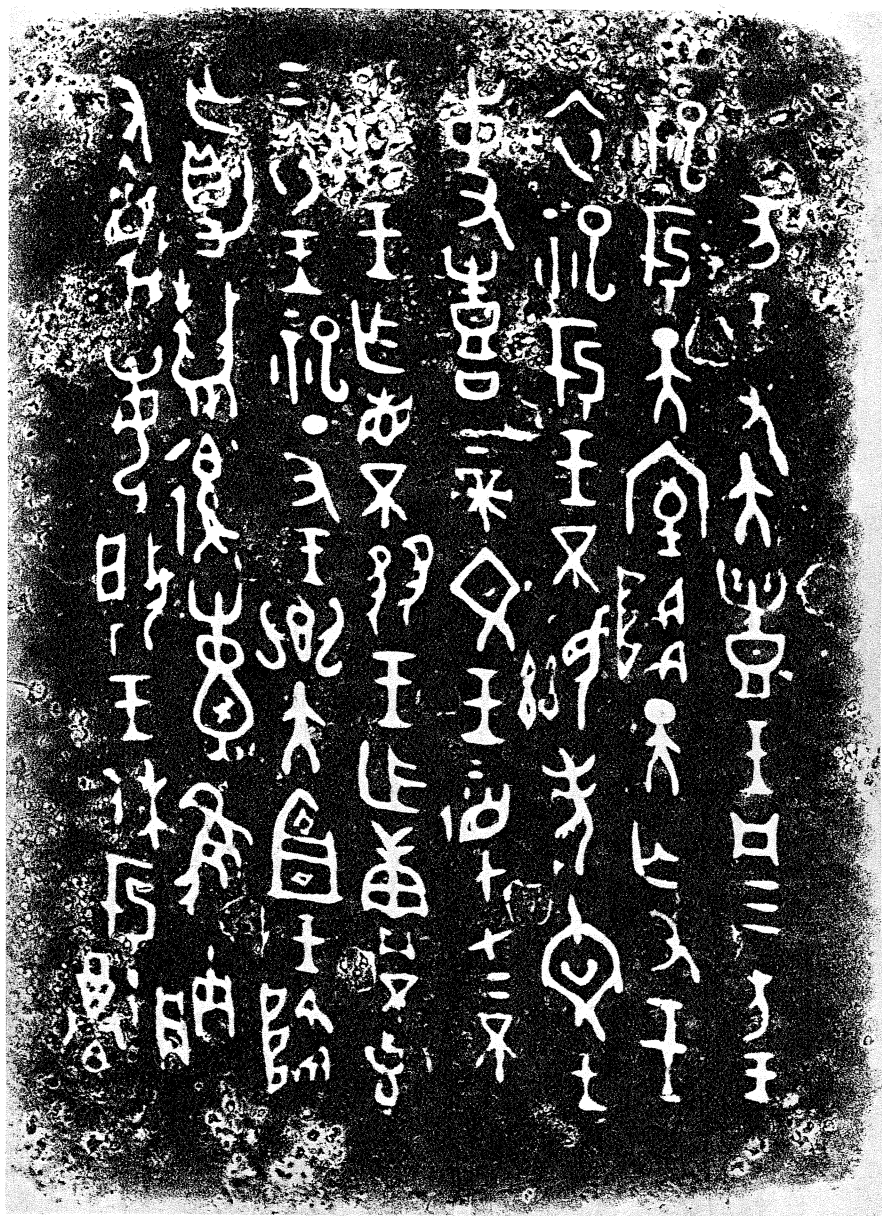 亥王又大豊王凡三方王
祀于天室降天亡又王
衣祀于王不顯考文王
事喜上帝文王監才上不
顯王乍省不𢑚王乍賡不克
气衣王祀丁丑王鄉大宜王降
亡勛爵復觵隹朕
又蔑每揚王休于尊